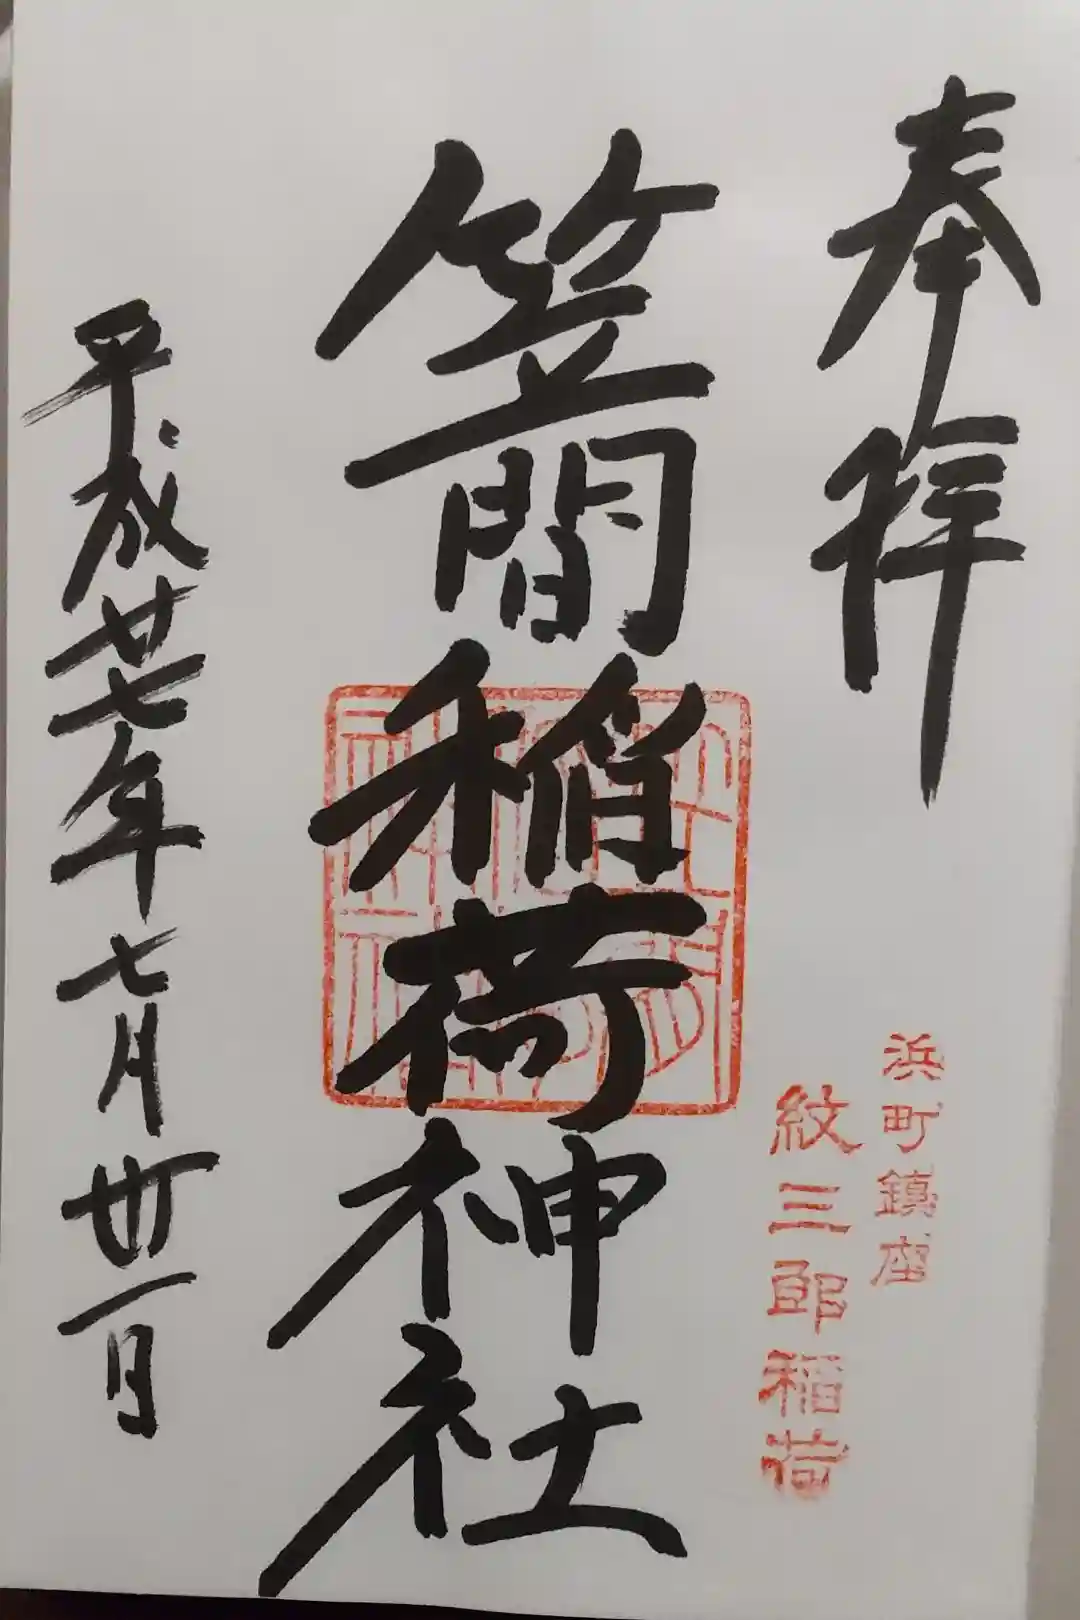 奉拝
浜町鎮座
紋三郎稲荷
笠間稲荷神社
平成廿七年七月卅一日